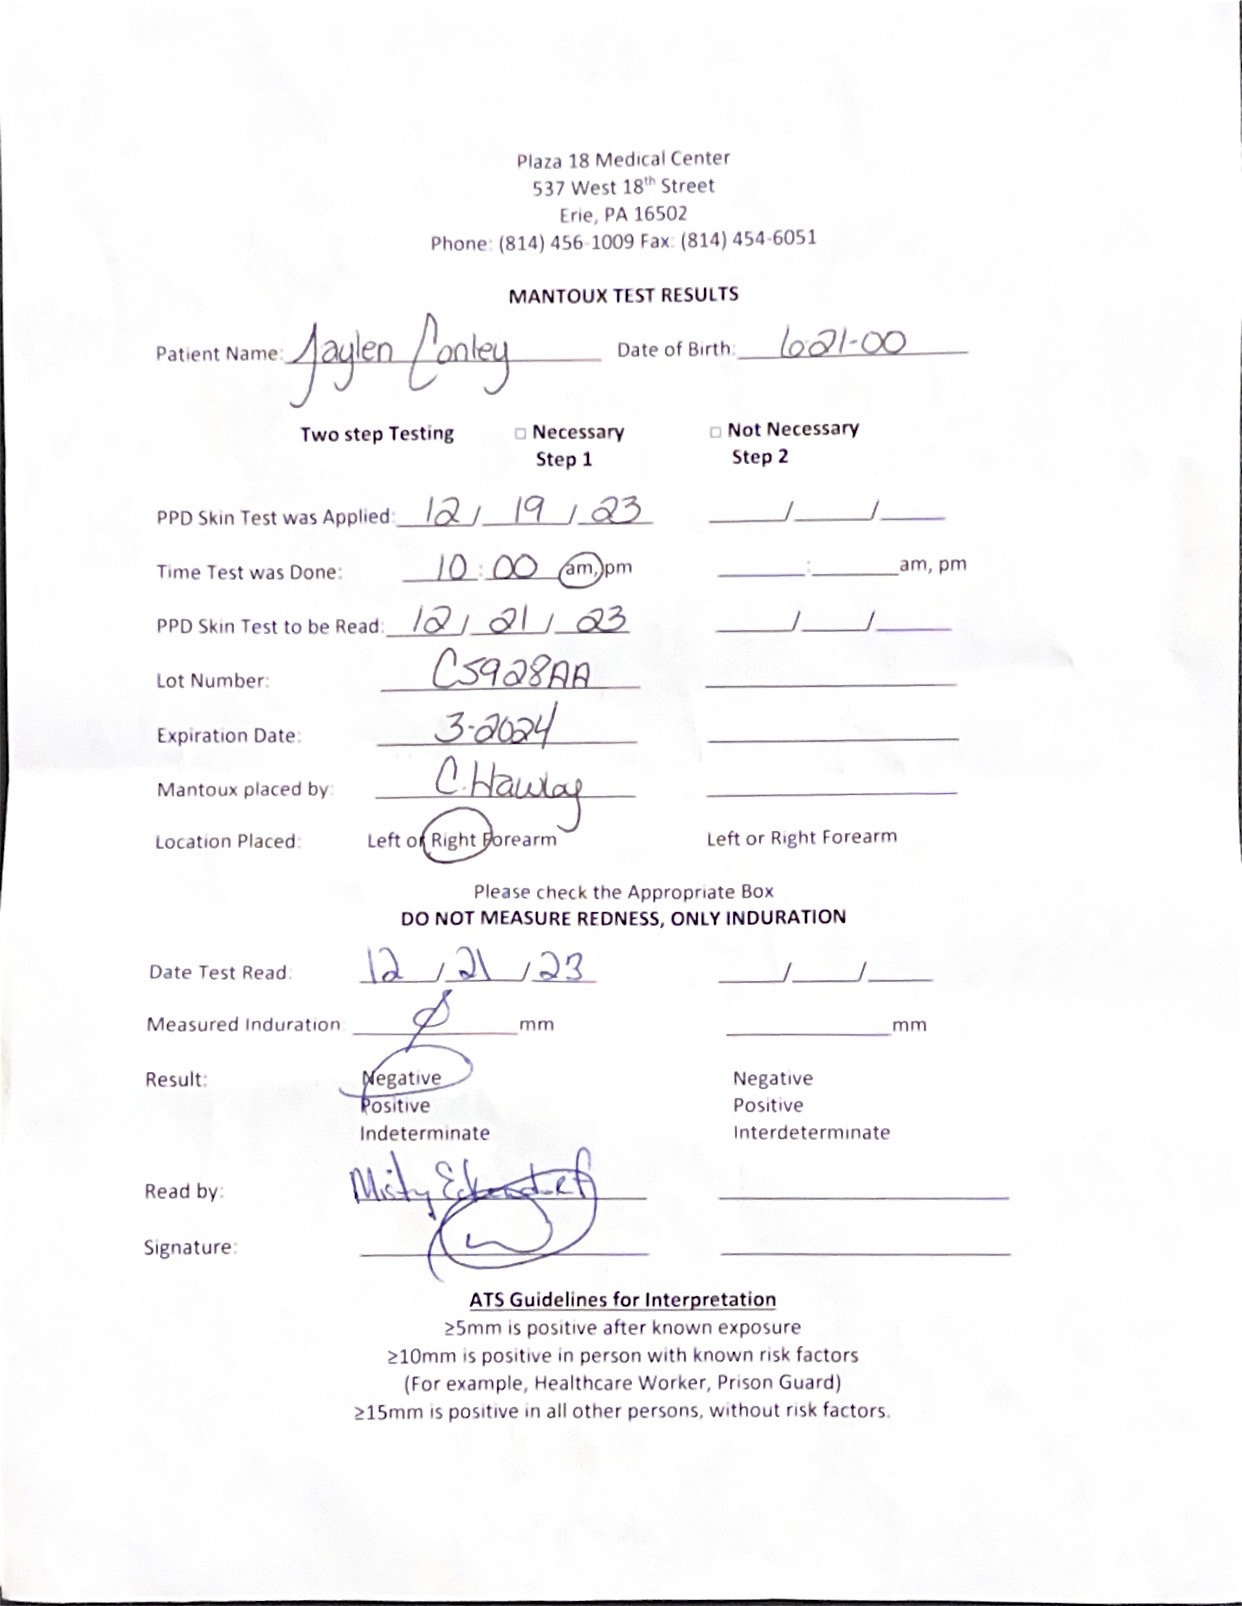 Plaza 18 Medical Center
537 West 18th Street
Erie, PA 16502
Phone: (814) 456-1009 Fax: (814) 454-6051
MANTOUX TEST RESULTS
Patient Name: Jaylen Conley Date of Birth: 6-21-00
Two step Testing □ Necessary □ Not Necessary
Step 1 Step 2
PPD Skin Test was Applied: 12 / 19 / 23 / /
Time Test was Done: 10:00 am, pm : am, pm
PPD Skin Test to be Read: 12 / 21 / 23 / /
Lot Number: C5928AA
Expiration Date: 3-2024
Mantoux placed by: C. Hawley
Location Placed: Left or Right Forearm Left or Right Forearm
Please check the Appropriate Box
DO NOT MEASURE REDNESS, ONLY INDURATION
Date Test Read: 12 / 21 / 23 / /
Measured Induration: Ø mm mm
Result: Negative Negative
Positive Positive
Indeterminate Interdeterminate
Read by: Misty
Signature:
ATS Guidelines for Interpretation
≥5mm is positive after known exposure
≥10mm is positive in person with known risk factors
(For example, Healthcare Worker, Prison Guard)
≥15mm is positive in all other persons, without risk factors.